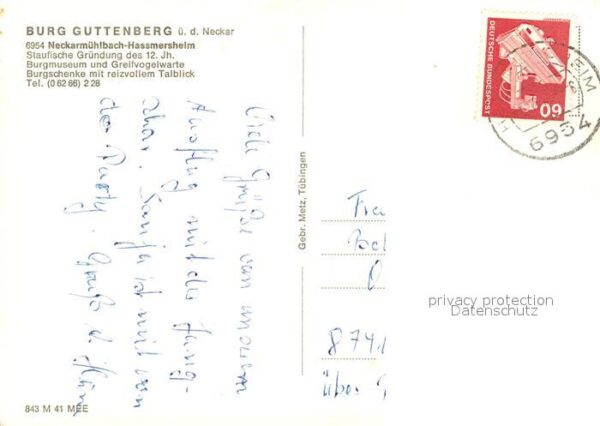 BURG GUTTENBERG ü. d. Neckar
6954 Neckarmühlbach-Hassmersheim
Staufische Gründung des 12. Jh.
Burgmuseum und Greifvogelwarte
Burgschenke mit reizvollem Talblick
Tel. (0 62 66) 2 28
Viele Grüße von unserem
Ausflug mit der Jung-
schar. Tanja ist mit von
der Party. Gruß
Gebr. Metz, Tübingen
Fra
über
DEUTSCHE BUNDESPOST
60
6954
privacy protection
Datenschutz
843 M 41 MEE